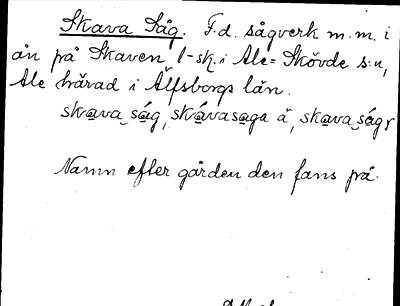 Skava Såg. F.d. sågverk m.m. i
ån på Skaven, l-sk. i Ale-Skövde s:n,
Ale härad i Älfsborgs län.
skava såg, skávasaga ä, skava såg
Namn efter gården den fans på.